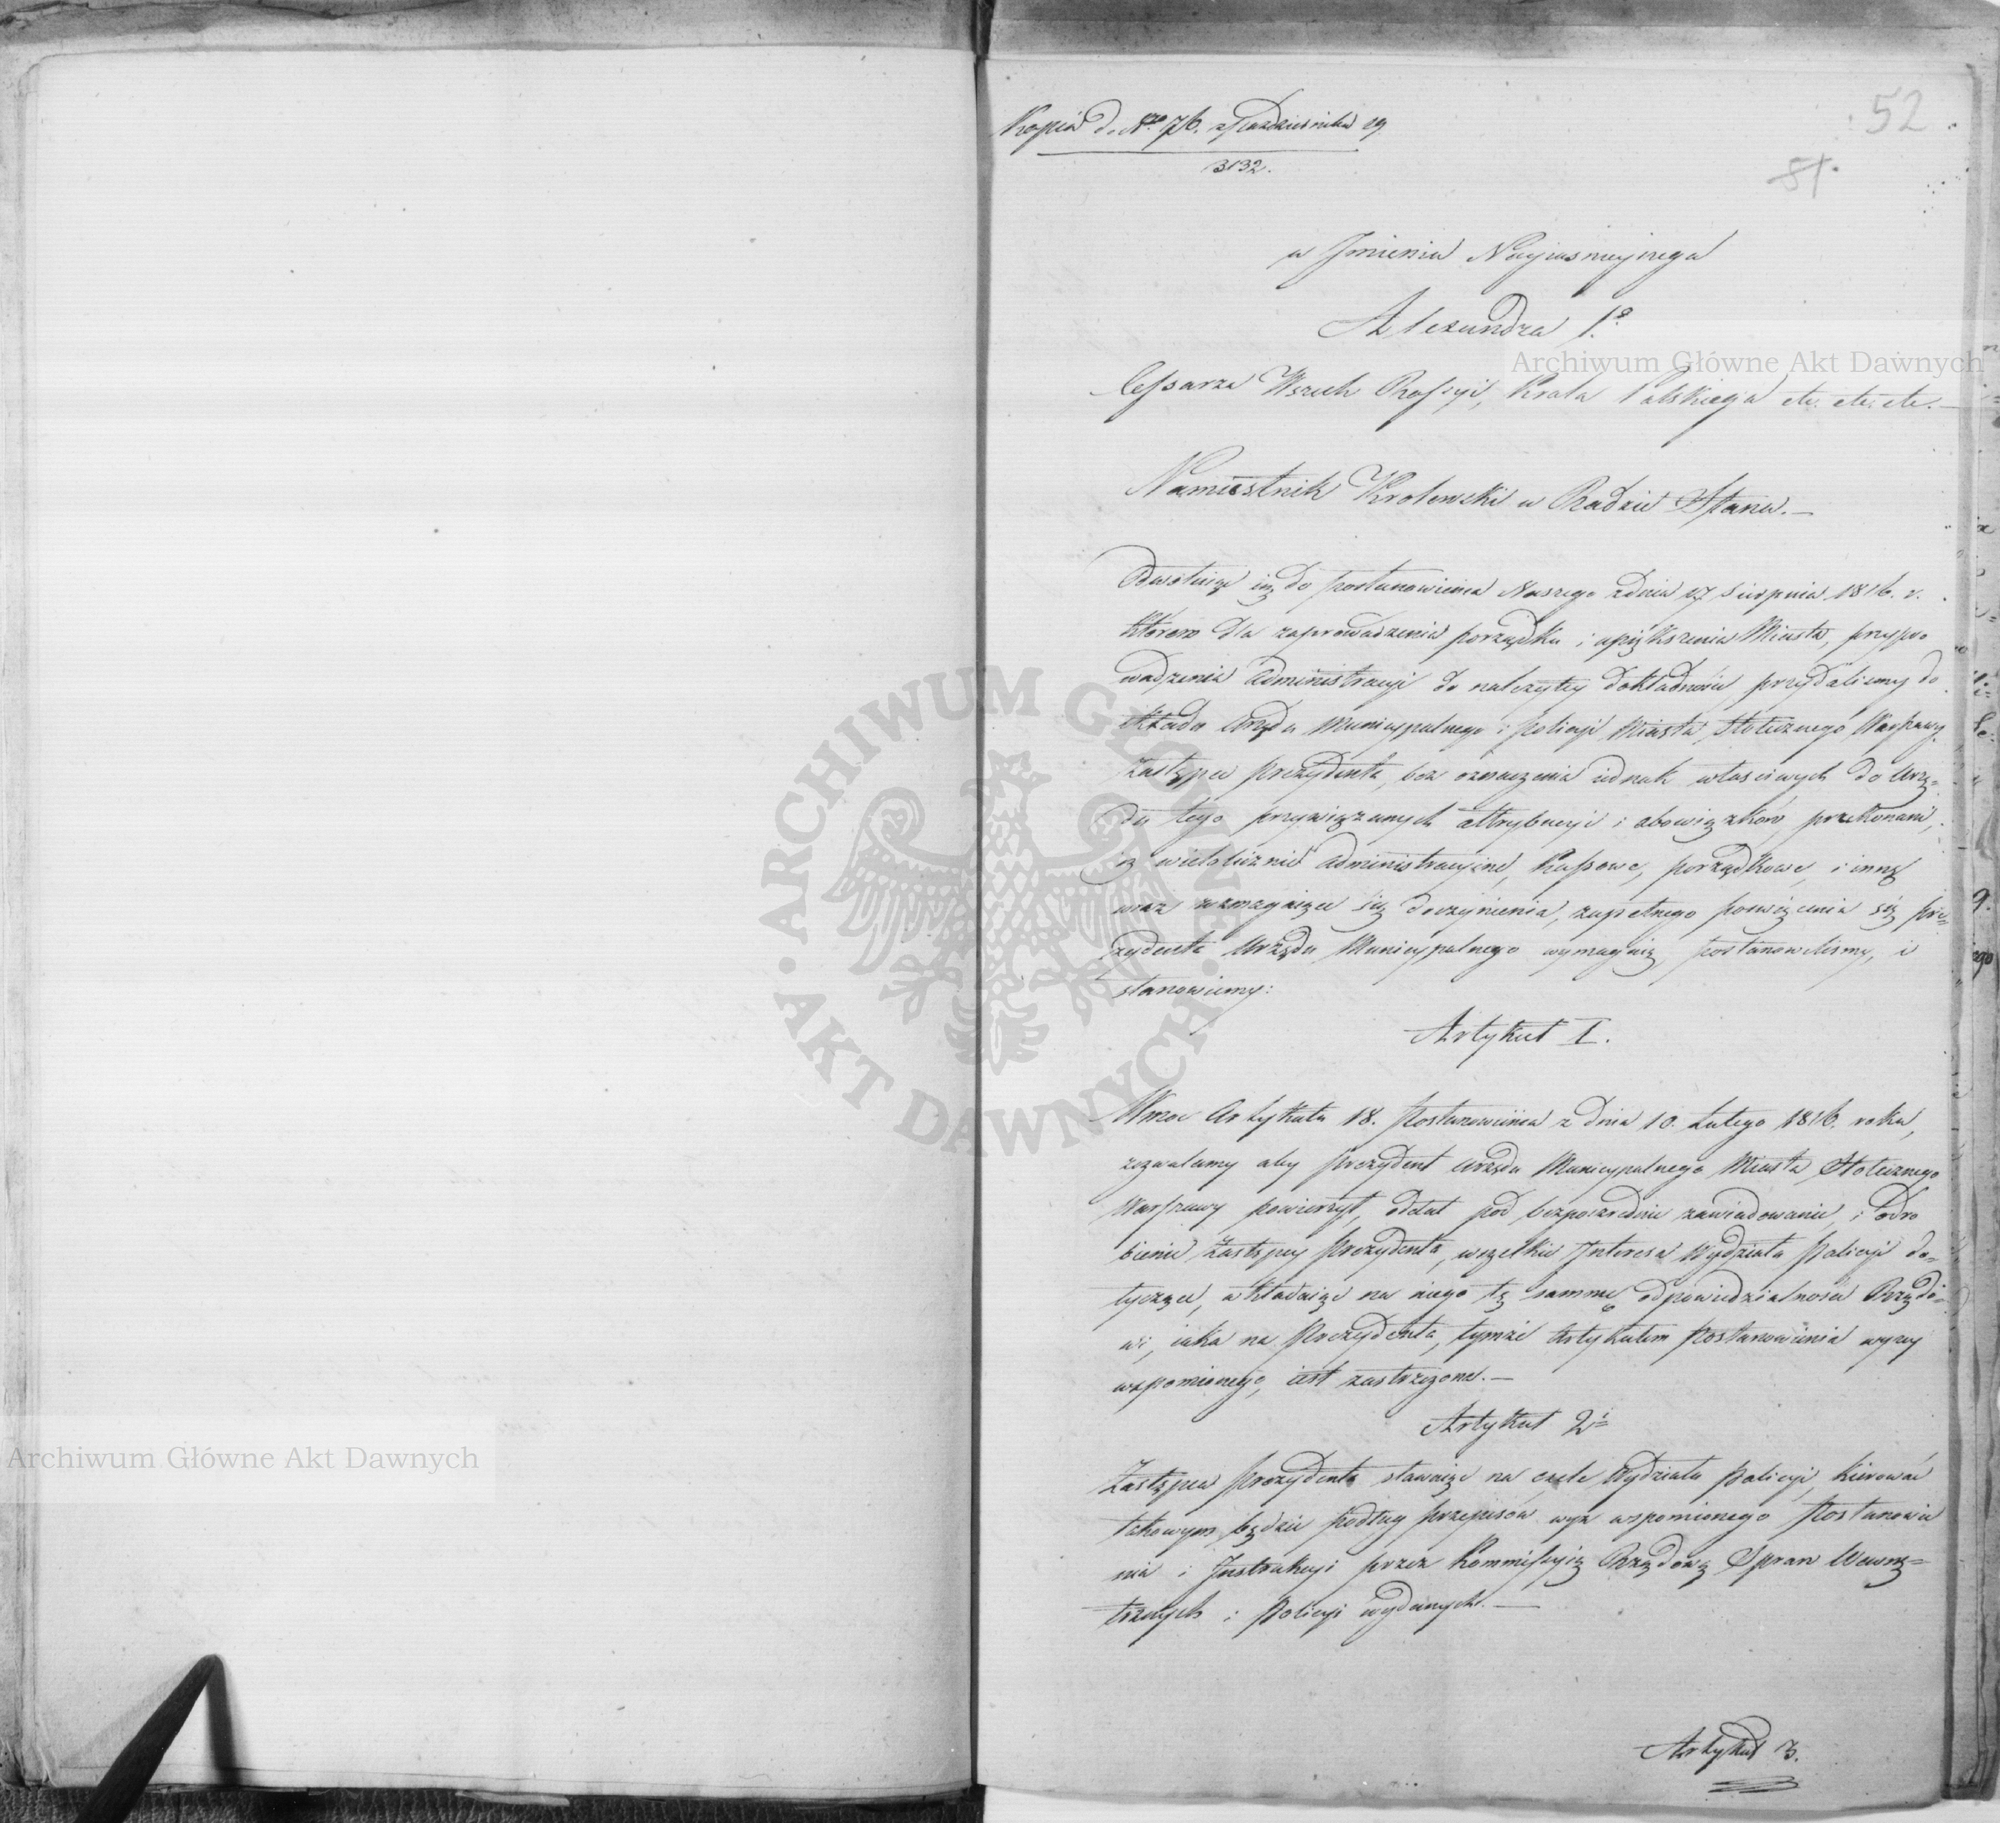 Kopia do Nro 76. z Października 19
3132.
52
51.
w Jmieniu Nayiasnieyszego
Alexandra 1o.
Cessarza Wszech Rossyi, Krola Polskiego etc. etc. etc. —
Namiestnik Krolewski w Radzie Stanu. —
Odwołuiąc się do postanowienia Naszego z dnia 27 Sierpnia 1816. r.
ktorem dla zaprowadzenia porządku i upiększenia Miasta, przypro
wadzenia administracyi do należytey dokładności przydaliśmy do
składu Urzędu Municypalnego i Policyi Miasta Stołecznego Warszawy,
Zastępcę Prezydenta, bez oznaczenia iednak właściwych do Urzę=
du tego przywiązanych attrybucyi i obowiązków, przekonani,
iż wieloliczne administracyine, Kassowe, porządkowe, i inne
wraz wzmagaiące się czynienia, zupełnego poswięcenia się Pre=
zydenta Urzędu Municypalnego wymagaią, postanowilismy, i
stanowiemy:
Artykuł I.
W moc Artykułu 18. Postanowienia z dnia 10. Lutego 1816. roku,
zezwalamy aby Prezydent Urzędu Municypalnego Miasta Stołecznego
Warszawy powierzył, oddał pod bezpośrednie zawiadowanie, i Odro
bienie Zastępcy Prezydenta, wszelkie Jnteresa Wydziału Policyi do=
tyczące, wkładaiąc na niego tę samme odpowiedzialność Rządo=
wi, iaka na Prezydenta, tymże Artykułem Postanowienia wyzey
wspomionego, iest zastrzeżona. —
Artykuł 2i
Zastępca Prezydenta stawaiąc na czele Wydziału Policyi, kierować
takowym będzie podług przepisów wyż wspomionego Postanowie
nia i Jnstrukcyi przez Kommissyią Rządową Spraw Wewnę=
trznych i Policyi wydanych. —
Artykuł 3.
Archiwum Główne Akt Dawnych
Archiwum Główne Akt Dawnych
ARCHIWUM GŁÓWNE AKT DAWNYCH